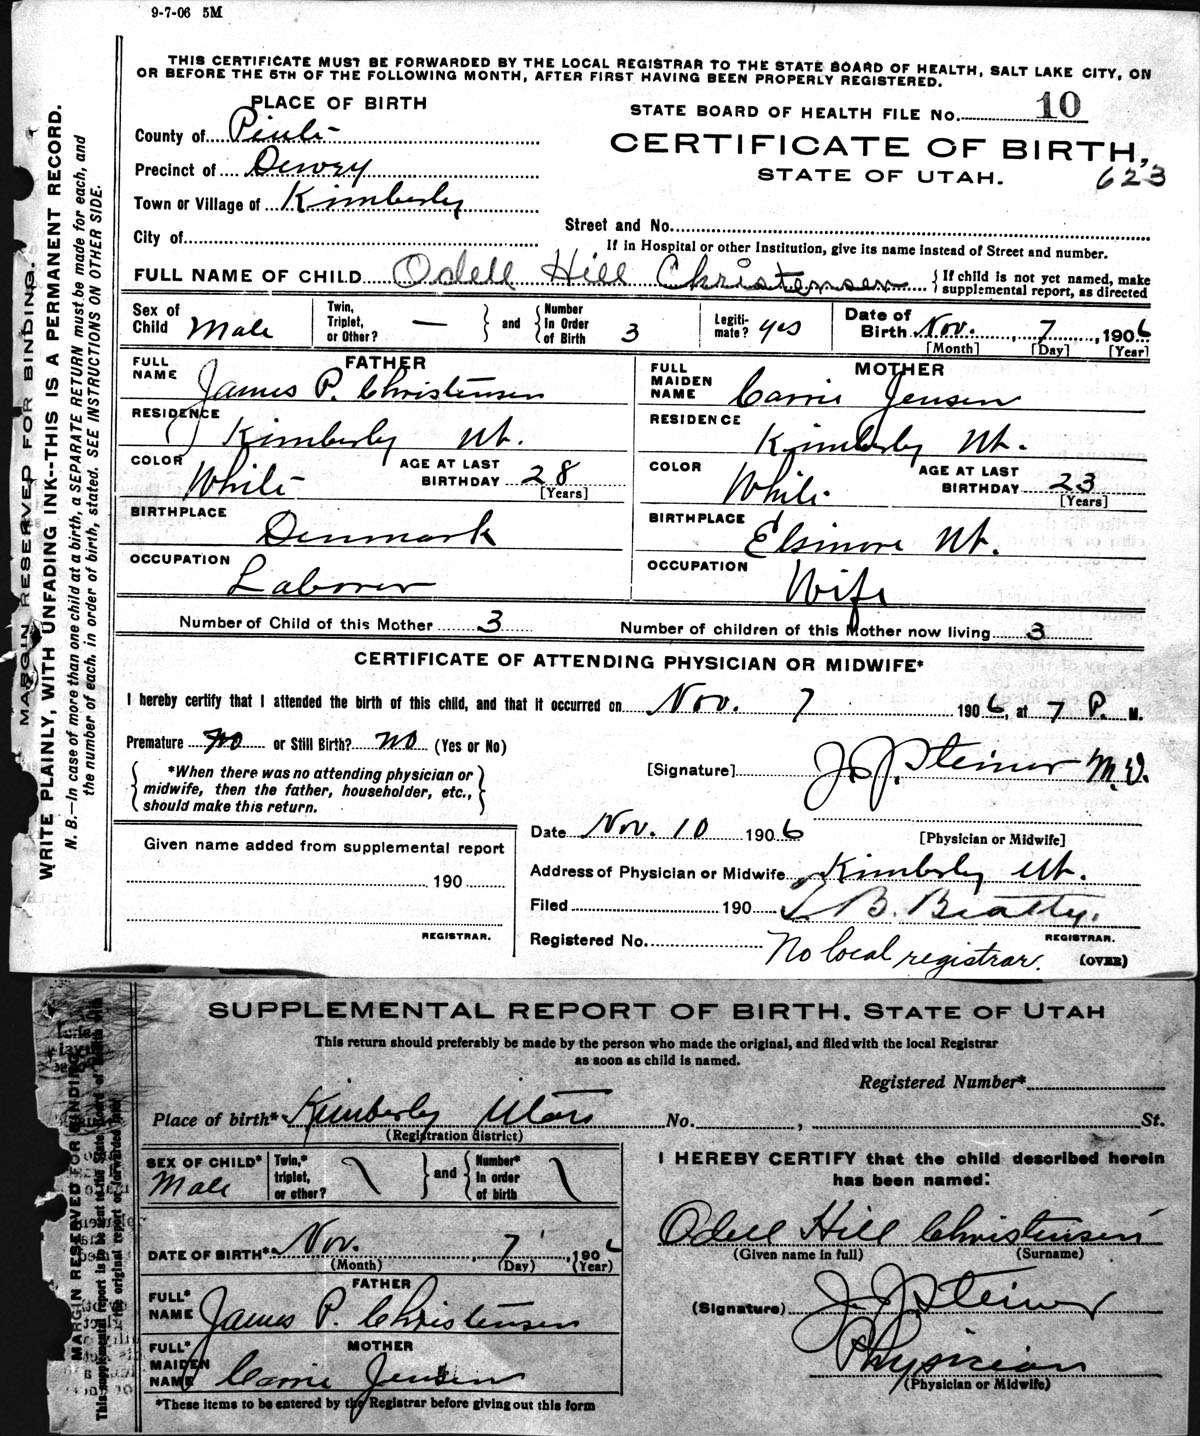 9-7-06 5M
THIS CERTIFICATE MUST BE FORWARDED BY THE LOCAL REGISTRAR TO THE STATE BOARD OF HEALTH, SALT LAKE CITY, ON
OR BEFORE THE 5TH OF THE FOLLOWING MONTH, AFTER FIRST HAVING BEEN PROPERLY REGISTERED.
MARGIN RESERVED FOR BINDING.
WRITE PLAINLY, WITH UNFADING INK--THIS IS A PERMANENT RECORD.
N. B.—In case of more than one child at a birth, a SEPARATE RETURN must be made for each, and
the number of each, in order of birth, stated. SEE INSTRUCTIONS ON OTHER SIDE.
PLACE OF BIRTH
STATE BOARD OF HEALTH FILE No. 10
County of Piute
CERTIFICATE OF BIRTH,
Precinct of Dewey
STATE OF UTAH. 623
Town or Village of Kimberly
Street and No.
City of
If in Hospital or other Institution, give its name instead of Street and number.
FULL NAME OF CHILD Odell Hill Christensen { If child is not yet named, make
supplemental report, as directed
Sex of Child Male Twin, Triplet, or Other? — } and { Number In Order of Birth 3 Legiti- mate? yes Date of Birth Nov. 7, 1906
[Month] [Day] [Year]
FATHER MOTHER
FULL NAME James P. Christensen FULL MAIDEN NAME Carrie Jensen
RESIDENCE Kimberly Ut. RESIDENCE Kimberly Ut.
COLOR White AGE AT LAST BIRTHDAY 28 [Years] COLOR White. AGE AT LAST BIRTHDAY 23 [Years]
BIRTHPLACE Denmark BIRTHPLACE Elsinore Ut.
OCCUPATION Laborer OCCUPATION Wife
Number of Child of this Mother 3 Number of children of this Mother now living 3
CERTIFICATE OF ATTENDING PHYSICIAN OR MIDWIFE*
I hereby certify that I attended the birth of this child, and that it occurred on Nov. 7 1906, at 7 P. M.
Premature no or Still Birth? no (Yes or No)
{ *When there was no attending physician or
midwife, then the father, householder, etc.,
should make this return. }
[Signature] J. J. Steiner M.D.
[Physician or Midwife]
Date Nov. 10 1906
Given name added from supplemental report
190
REGISTRAR.
Address of Physician or Midwife Kimberly Ut.
Filed 190 B. Beatty.
REGISTRAR.
Registered No. No local registrar. (OVER)
MARGIN RESERVED FOR BINDING
SUPPLEMENTAL REPORT OF BIRTH, STATE OF UTAH
This return should preferably be made by the person who made the original, and filed with the local Registrar
as soon as child is named.
Registered Number*
Place of birth* Kimberly Utah No. , St.
(Registration district)
SEX OF CHILD* Male Twin,* triplet, or other? } and { Number* In order of birth
DATE OF BIRTH* Nov. 7, 1906
(Month) (Day) (Year)
FATHER
FULL* NAME James P. Christensen
MOTHER
FULL* MAIDEN NAME Carrie Jensen
*These items to be entered by the Registrar before giving out this form
I HEREBY CERTIFY that the child described herein
has been named:
Odell Hill Christensen
(Given name in full) (Surname)
(Signature) J. J. Steiner
Physician
(Physician or Midwife)